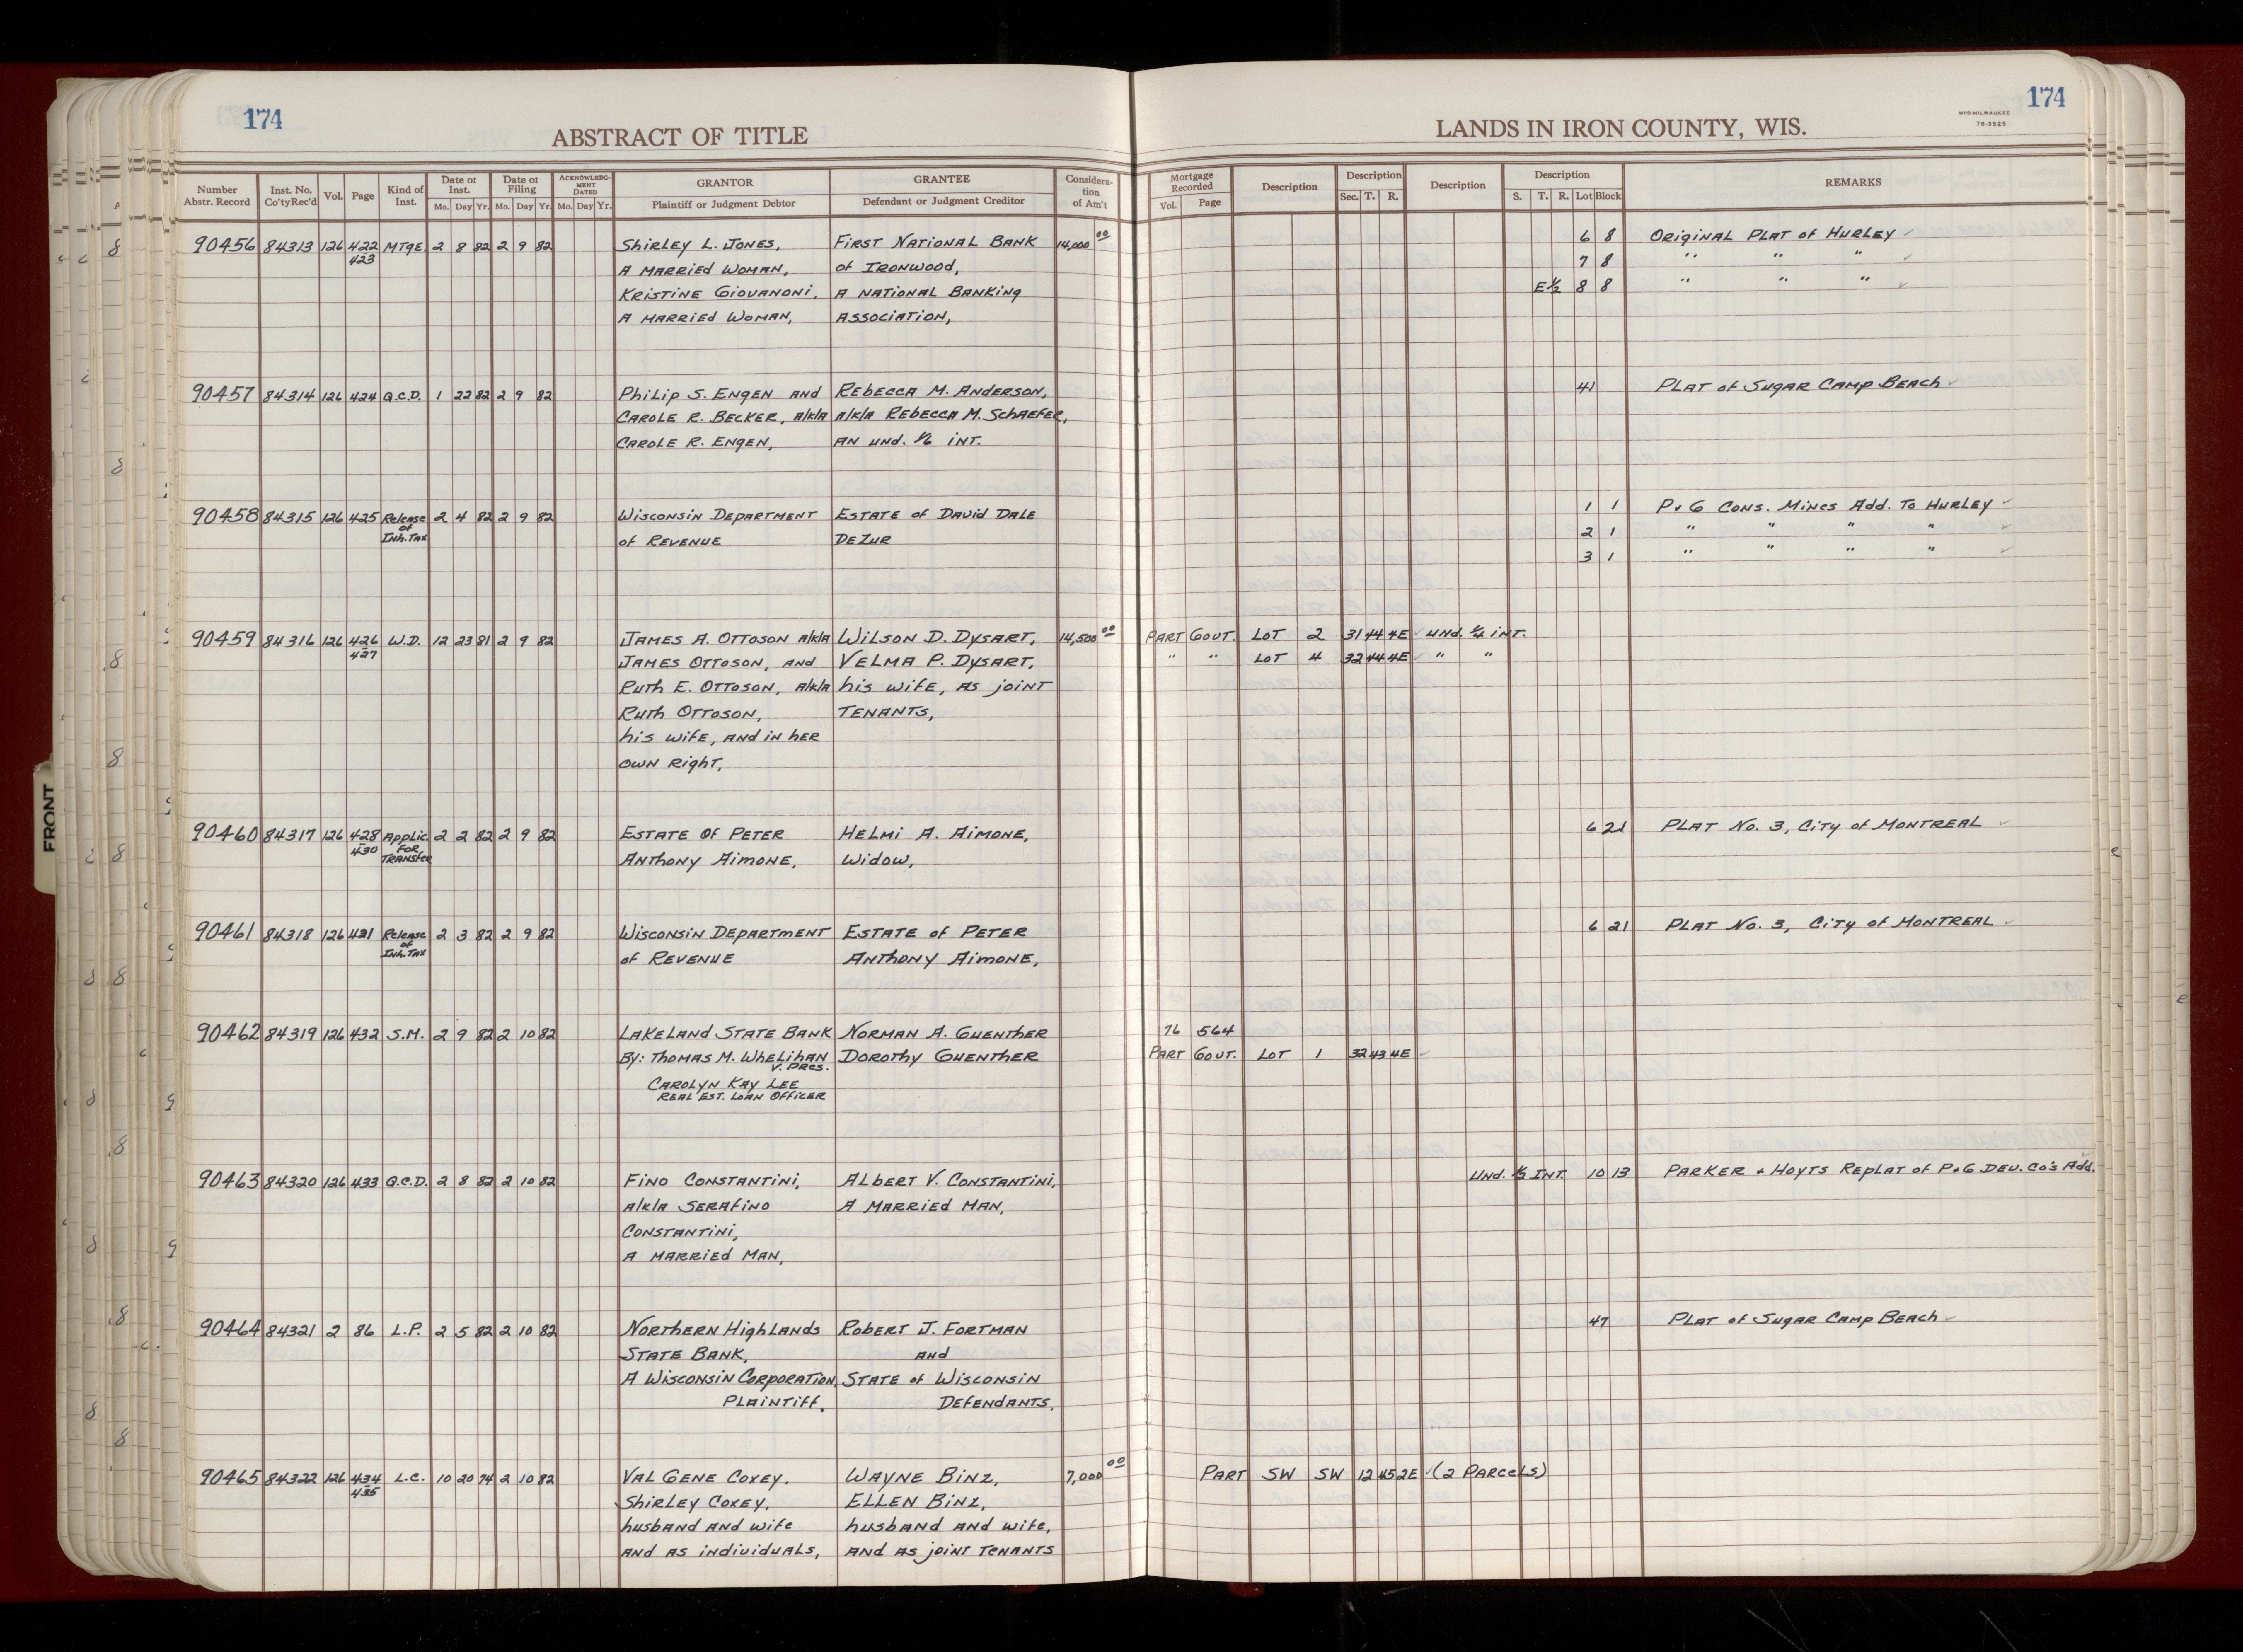 174
ABSTRACT OF TITLE
Number Abstr. Record | Inst. No. Co'ty Rec'd | Vol. | Page | Kind of Inst. | Date of Inst. Mo. Day Yr. | Date of Filing Mo. Day Yr. | ACKNOWLEDGMENT DATED Mo. Day Yr. | GRANTOR Plaintiff or Judgment Debtor | GRANTEE Defendant or Judgment Creditor | Consideration of Am't
90456 84313 126 422 MTgE. 2 8 82 2 9 82 Shirley L. Jones, First National Bank 14,000 00
423 A married woman, of Ironwood,
Kristine Giovanoni, A National Banking
A married woman, Association,
90457 84314 126 424 Q.C.D. 1 22 82 2 9 82 Philip S. Engen and Rebecca M. Anderson,
Carole R. Becker, a/k/a a/k/a Rebecca M. Schaefer,
Carole R. Engen, an und. 1/6 int.
90458 84315 126 425 Release 2 4 82 2 9 82 Wisconsin Department Estate of David Dale
of of Revenue DeZur
Inh. Tax
90459 84316 126 426 W.D. 12 23 81 2 9 82 James A. Ottoson a/k/a Wilson D. Dysart, 14,500 00
427 James Ottoson, and Velma P. Dysart,
Ruth E. Ottoson, a/k/a his wife, as joint
Ruth Ottoson, tenants,
his wife, and in her
own right,
90460 84317 126 428 Applic. 2 2 82 2 9 82 Estate of Peter Helmi A. Aimone,
430 For Anthony Aimone, widow,
Transfer
90461 84318 126 431 Release 2 3 82 2 9 82 Wisconsin Department Estate of Peter
of of Revenue Anthony Aimone,
Inh. Tax
90462 84319 126 432 S.M. 2 9 82 2 10 82 Lakeland State Bank Norman A. Guenther
By: Thomas M. Whelihan Dorothy Guenther
V. Pres.
Carolyn Kay Lee
Real Est. Loan Officer
90463 84320 126 433 Q.C.D. 2 8 82 2 10 82 Fino Constantini, Albert V. Constantini,
a/k/a Serafino A married man,
Constantini,
A married man,
90464 84321 2 86 L.P. 2 5 82 2 10 82 Northern Highlands Robert J. Fortman
State Bank, and
A Wisconsin Corporation, State of Wisconsin
Plaintiff, Defendants,
90465 84322 126 434 L.C. 10 20 74 2 10 82 Val Gene Coxey, Wayne Binz, 7,000 00
435 Shirley Coxey, Ellen Binz,
husband and wife husband and wife,
and as individuals, and as joint tenants
174
LANDS IN IRON COUNTY, WIS.
WPB-MILWAUKEE
78-3525
Mortgage Recorded Vol. Page | Description | Description Sec. T. R. | Description | Description S. T. R. Lot Block | REMARKS
6 8 Original Plat of Hurley
7 8 " " "
E½ 8 8 " " "
41 Plat of Sugar Camp Beach
1 1 P & G Cons. Mines Add. To Hurley
2 1 " " " "
3 1 " " " "
Part Gout. Lot 2 31 44 4E und. ¼ int.
" " Lot 4 32 44 4E " "
6 21 Plat No. 3, City of Montreal
6 21 Plat No. 3, City of Montreal
76 564
Part Gout. Lot 1 32 43 4E
Und. ½ Int. 10 13 Parker & Hoyts Replat of P & G Dev. Co's Add.
47 Plat of Sugar Camp Beach
Part SW SW 12 45 2E (2 Parcels)
FRONT